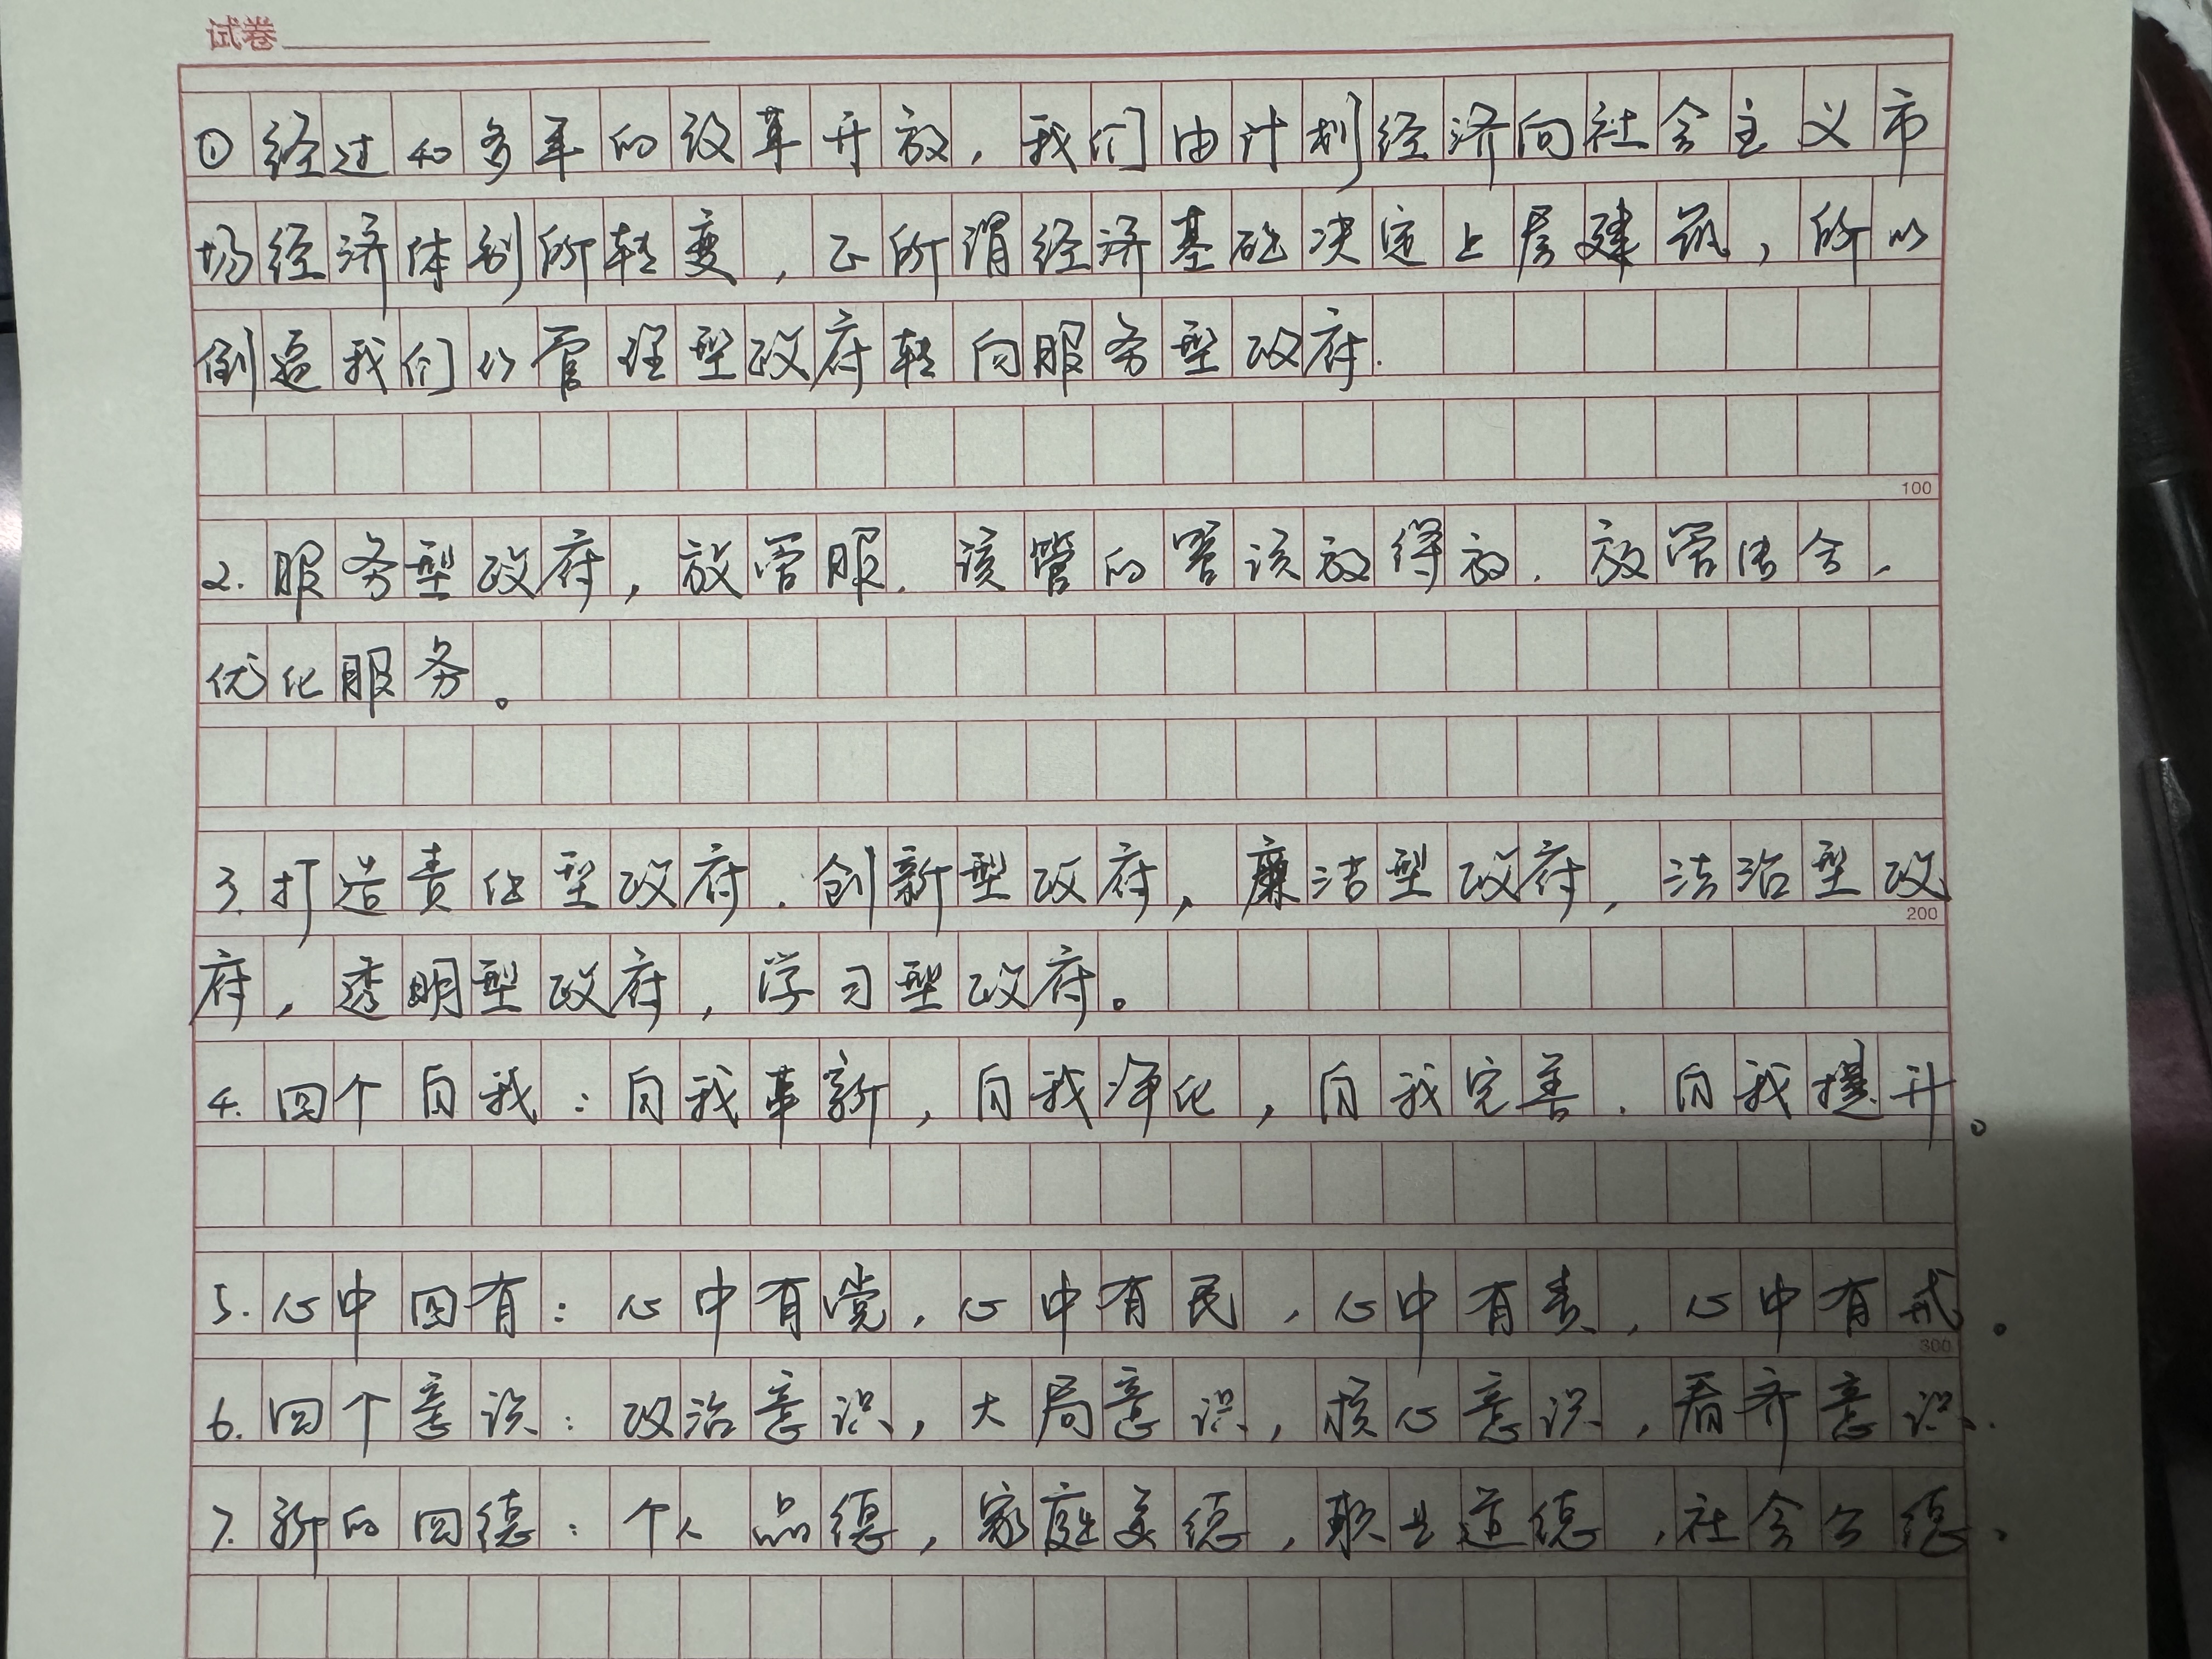 试卷
①经过40多年的改革开放，我们由计划经济向社会主义市
场经济体制所转变，正所谓经济基础决定上层建筑，所以
倒逼我们从管理型政府转向服务型政府.
100
2.服务型政府，放管服.该管的管该放得放.放管结合.
优化服务。
3.打造责任型政府.创新型政府，廉洁型政府，法治型政
200
府，透明型政府，学习型政府。
4.四个自我：自我革新，自我净化，自我完善.自我提升。
5.心中四有：心中有党，心中有民，心中有责，心中有戒。
300
6.四个意识：政治意识，大局意识，核心意识，看齐意识.
7.新的四德：个人品德，家庭美德，职业道德，社会公德.